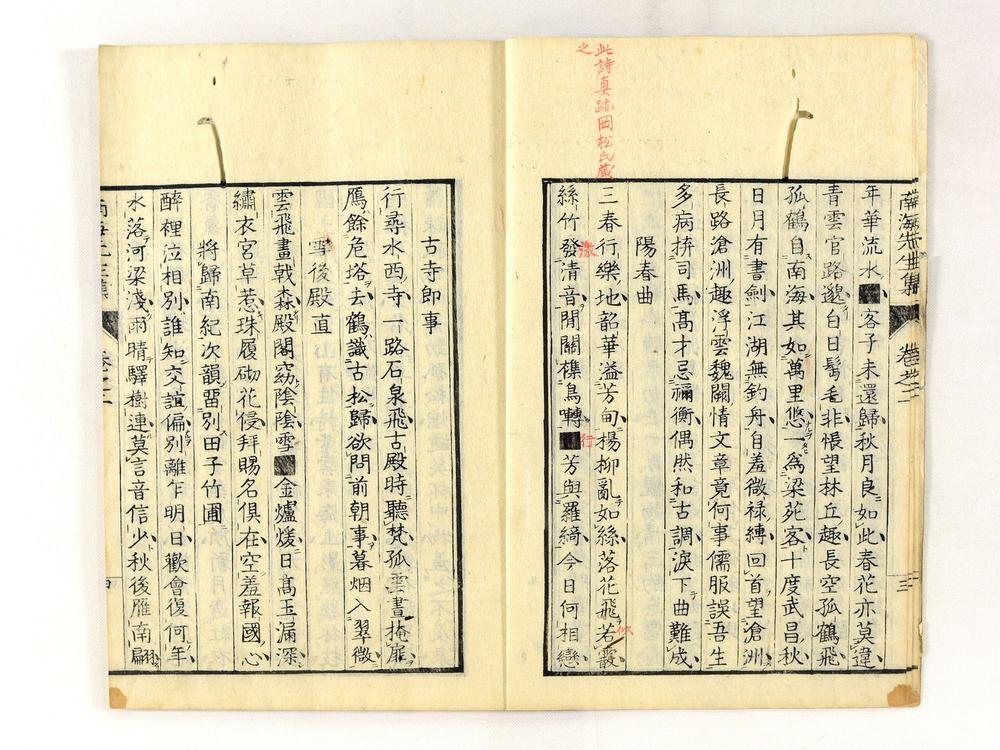 此詩真跡岡松氏蔵
之
南海先生集 卷之二 三
年華流水■客子未還歸秋月良如此春花亦莫違
青雲官路邈白日鬢毛非悵望林丘趣長空孤鶴飛
孤鶴自南海其如萬里悠一爲梁苑客十度武昌秋
日月有書劍江湖無釣舟自羞微祿縛回首望滄洲
長路滄洲趣浮雲魏闕情文章竟何事儒服誤吾生
多病拚司馬髙才忌禰衡偶然和古調淚下曲難成
陽春曲
三春行樂地韶華溢芳甸楊柳亂如絲落花飛若霰
絲竹發清音間關樵鳥囀■芳與羅綺今日何相戀
行
古寺即事
行尋水西寺一路石泉飛古殿時聽梵孤雲晝掩扉
鴈餘危塔去鶴識古松歸欲問前朝事暮烟入翠微
雪後殿直
雲飛畫戟森殿閣窈陰陰雪■金爐煖日髙玉漏深
繡衣宮草惹珠履砌花侵拜賜名倶在空羞報國心
將歸南紀次韻留別田子竹圃
醉裡泣相別誰知交誼偏別離乍明日歡會復何年
水落河梁淺雨晴驛樹連莫言音信少秋後雁南翩
南海先生集 卷之二 四